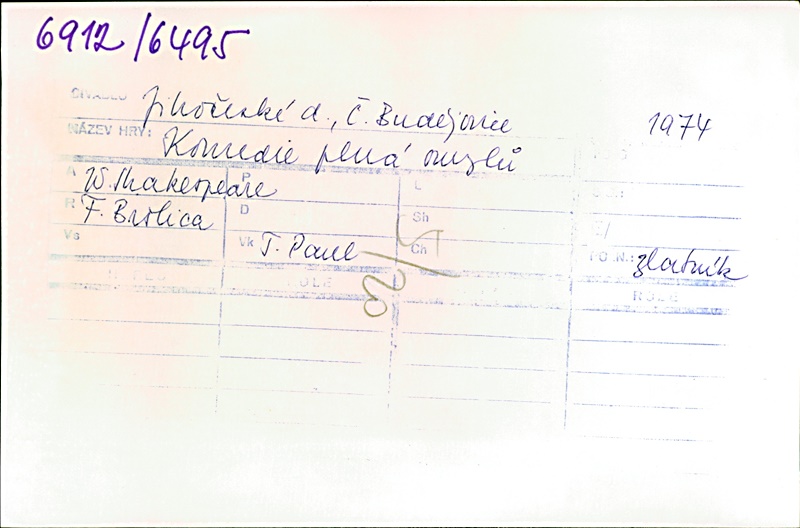 6912/6495
DIVADLO Jihočeské d., Č. Budějovice 1974
NÁZEV HRY: Komedie plná omylů
A W. Shakespeare P L
R F. Brolica D Sh
Vs Vk T. Paul Ch POZN.: zlatník
ROLE ROLE